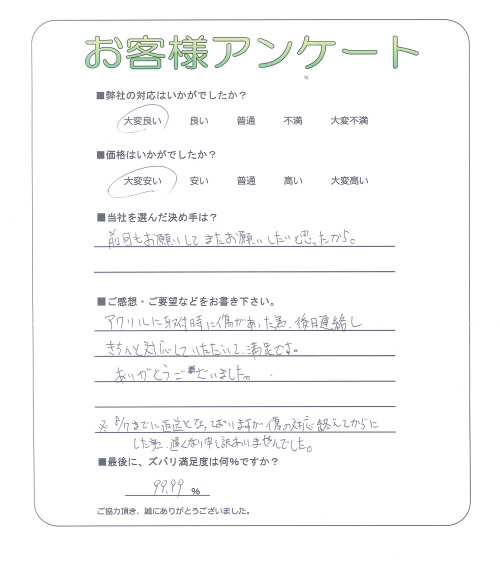 お客様アンケート
■弊社の対応はいかがでしたか?
大変良い 良い 普通 不満 大変不満
■価格はいかがでしたか?
大変安い 安い 普通 高い 大変高い
■当社を選んだ決め手は?
前回もお願いしてまたお願いしたいと思ったから。
■ご感想・ご要望などをお書き下さい。
アクリルに取付時に傷があった為、後日連絡し
きちんと対応していただいて、満足です。
ありがとうございました。
※ 8/7までに返送となっておりますが傷の対応終えてからに
した為、遅くなり申し訳ありませんでした。
■最後に、ズバリ満足度は何%ですか?
99.99 %
ご協力頂き、誠にありがとうございました。